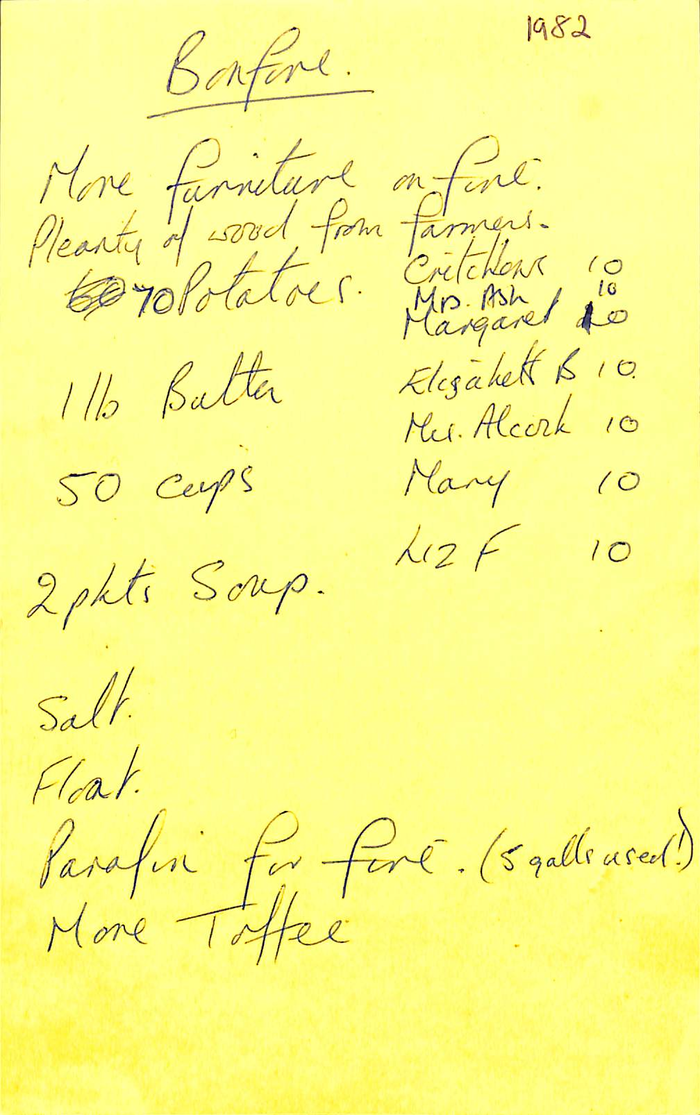 1982
Bonfire.
More furniture on fire.
Pleanty of wood from farmers.
70 Potatoes.
Critchlows 10
Mrs. Ash 10
Margaret 10
1 lb Butter
Elizabeth B 10.
Mrs. Alcock 10
50 cups
Mary 10
Liz F 10
2 pkts Soup.
Salt.
Float.
Parafin for fire. (5 galls used!)
More Toffee